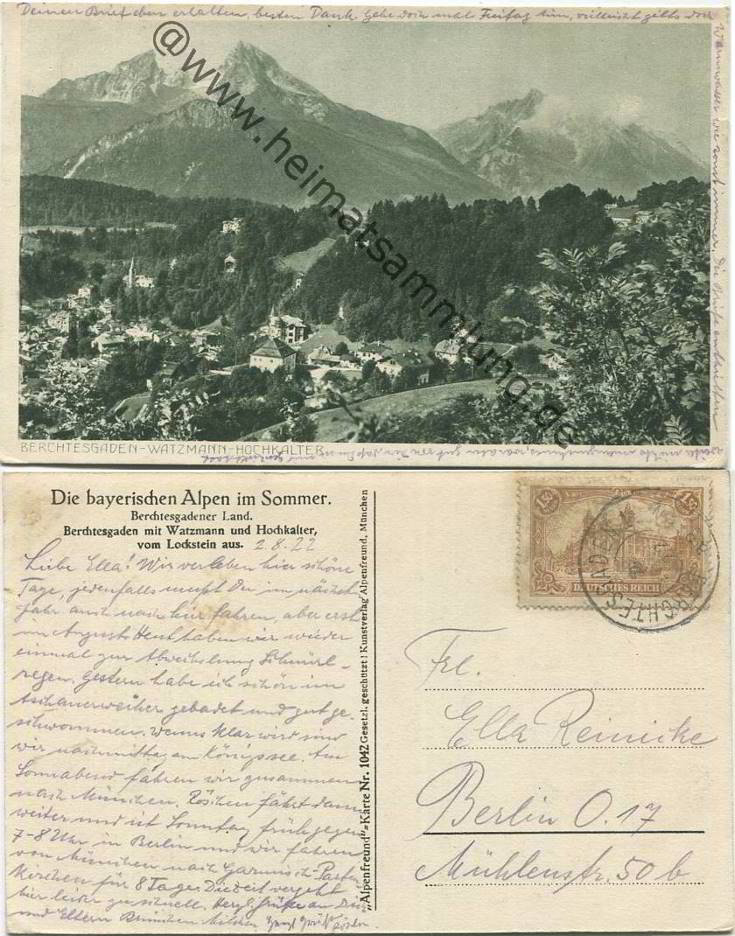 Deinen Brief eben erhalten, besten Dank. Gehe doch mal Freitag hin, vielleicht gibts doch
Warmwasser wie sonst immer. Die
@www.heimatsammlung.de
BERCHTESGADEN-WATZMANN-HOCHKALTER
Die bayerischen Alpen im Sommer.
Berchtesgadener Land.
Berchtesgaden mit Watzmann und Hochkalter,
vom Lockstein aus. 2.8.22
Liebe Ella! Wir verleben hier schöne
Tage, jedenfalls mußt Du im nächst
Jahr auch nach hier fahren, aber erst
im August. Heut haben wir wieder
einmal zur Abwechslung Schnürl-
regen. Gestern habe ich schön im
Aschauerweiher gebadet und gut ge-
schwommen. Wenns klar wird sind
wir nachmittag am Königssee. Am
Sonnabend fahren wir zusammen
nach München. fährt dann
weiter und ist Sonntag früh gegen
7-8 Uhr in Berlin und wir fahren
von München nach Garmisch-Parten
kirchen für 8 Tage. Die Zeit vergeht
hier leider zu schnell. Herzl. Grüße an Dich
und Eltern
„Alpenfreund"-Karte Nr. 1042 Gesetzl. geschützt! Kunstverlag Alpenfreund, München
1,50 1,50
DEUTSCHES REICH
BERCHTESGADEN
Frl.
Ella Reinicke
Berlin O. 17
Mühlenstr. 50 b